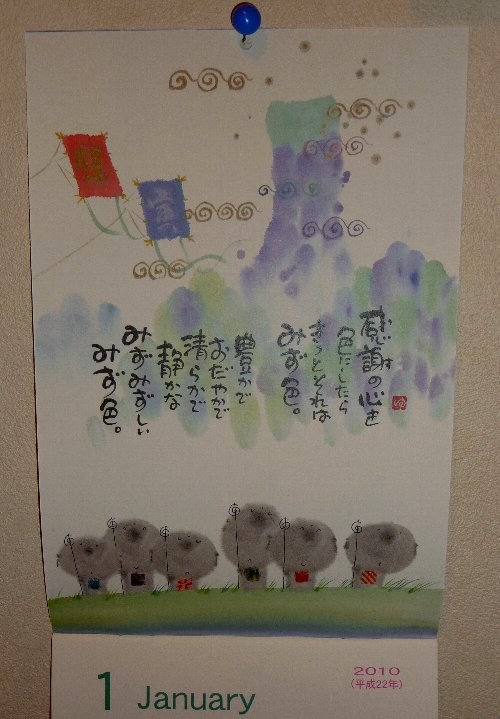 感謝の心を
色にしたら
きっとそれは
みず色。
豊かで
おだやかで
清らかで
静かな
みずみずしい
みず色。
1 January
2010
(平成22年)